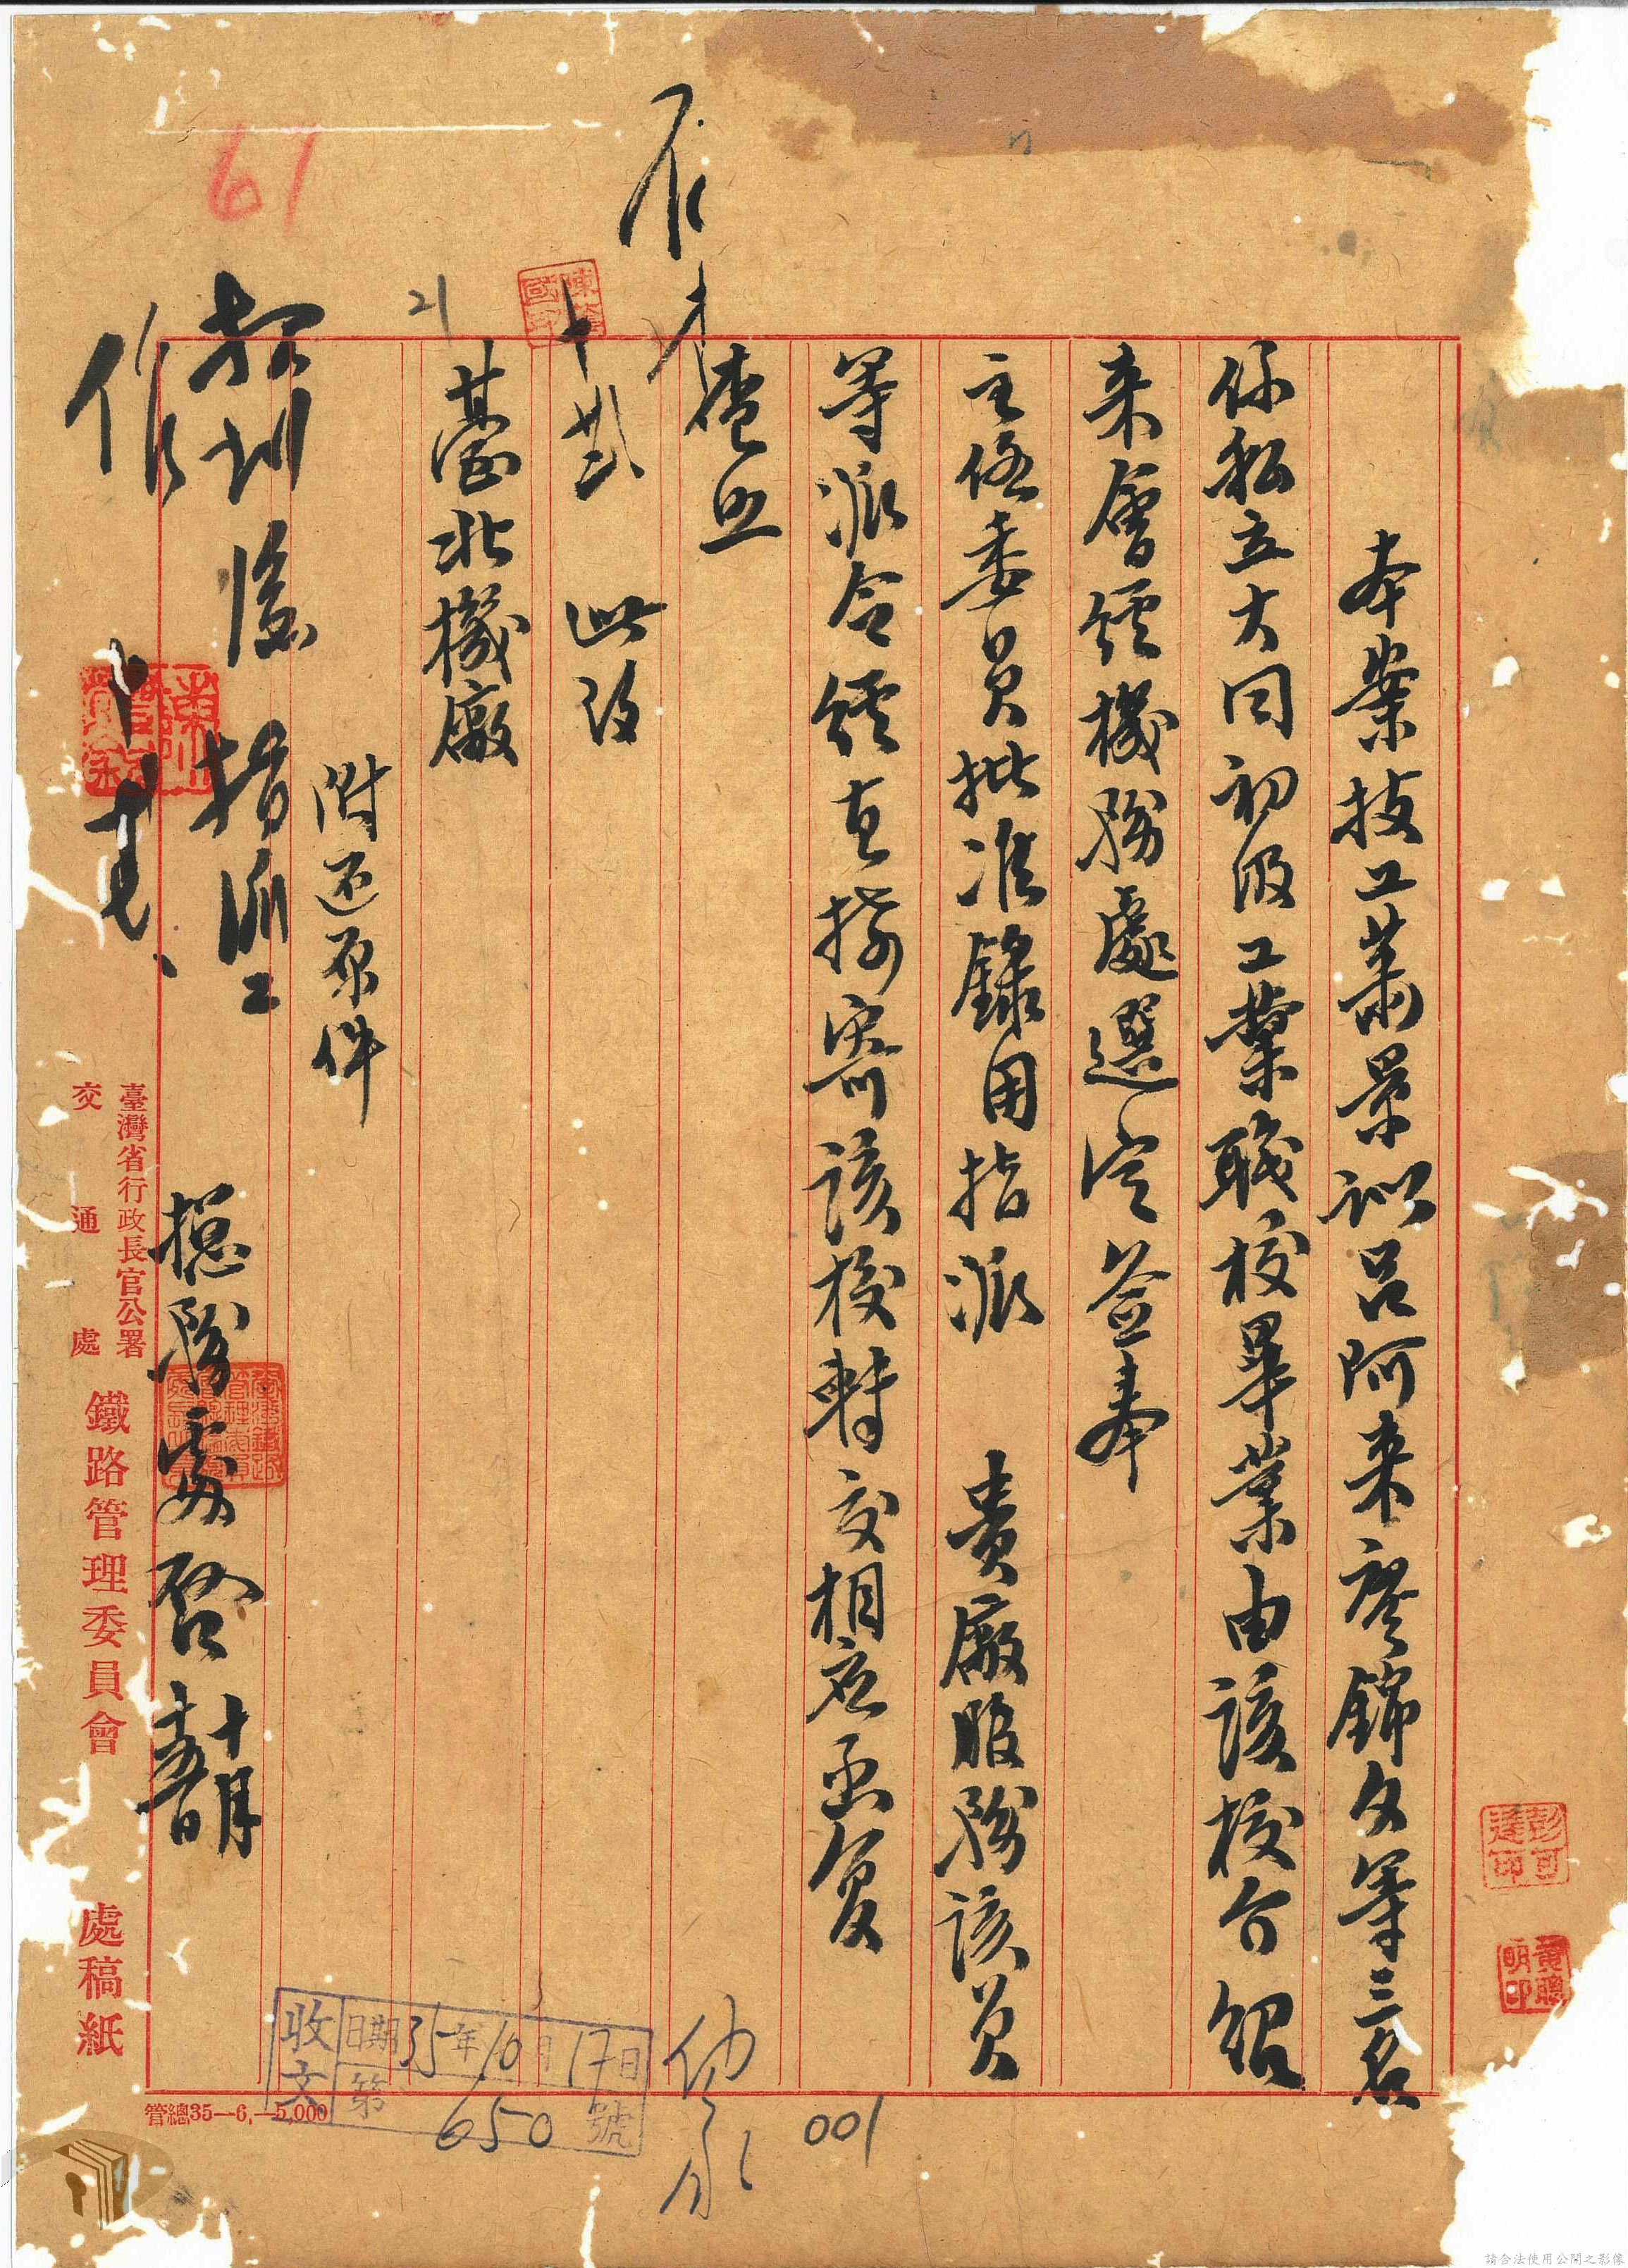 本案技工蕭景訓呂阿来廖錦文等三名
係私立大同初級工業職校畢業由該校介紹
来會經機務處選定簽奉
主任委員批准錄用指派 貴廠服務該員
等派令經直接寄該校轉交相应函复
查照
此致
臺北機廠
附还原件
總務處啓 十月十五日
招訓後指派工
作
臺灣省行政長官公署
交通處
鐵路管理委員會 處稿紙
收文 日期35年10月17日
第650號
管總35—6,—5,000
001
61
21
彭可達印
黃聰明印
請合法使用公開之影像